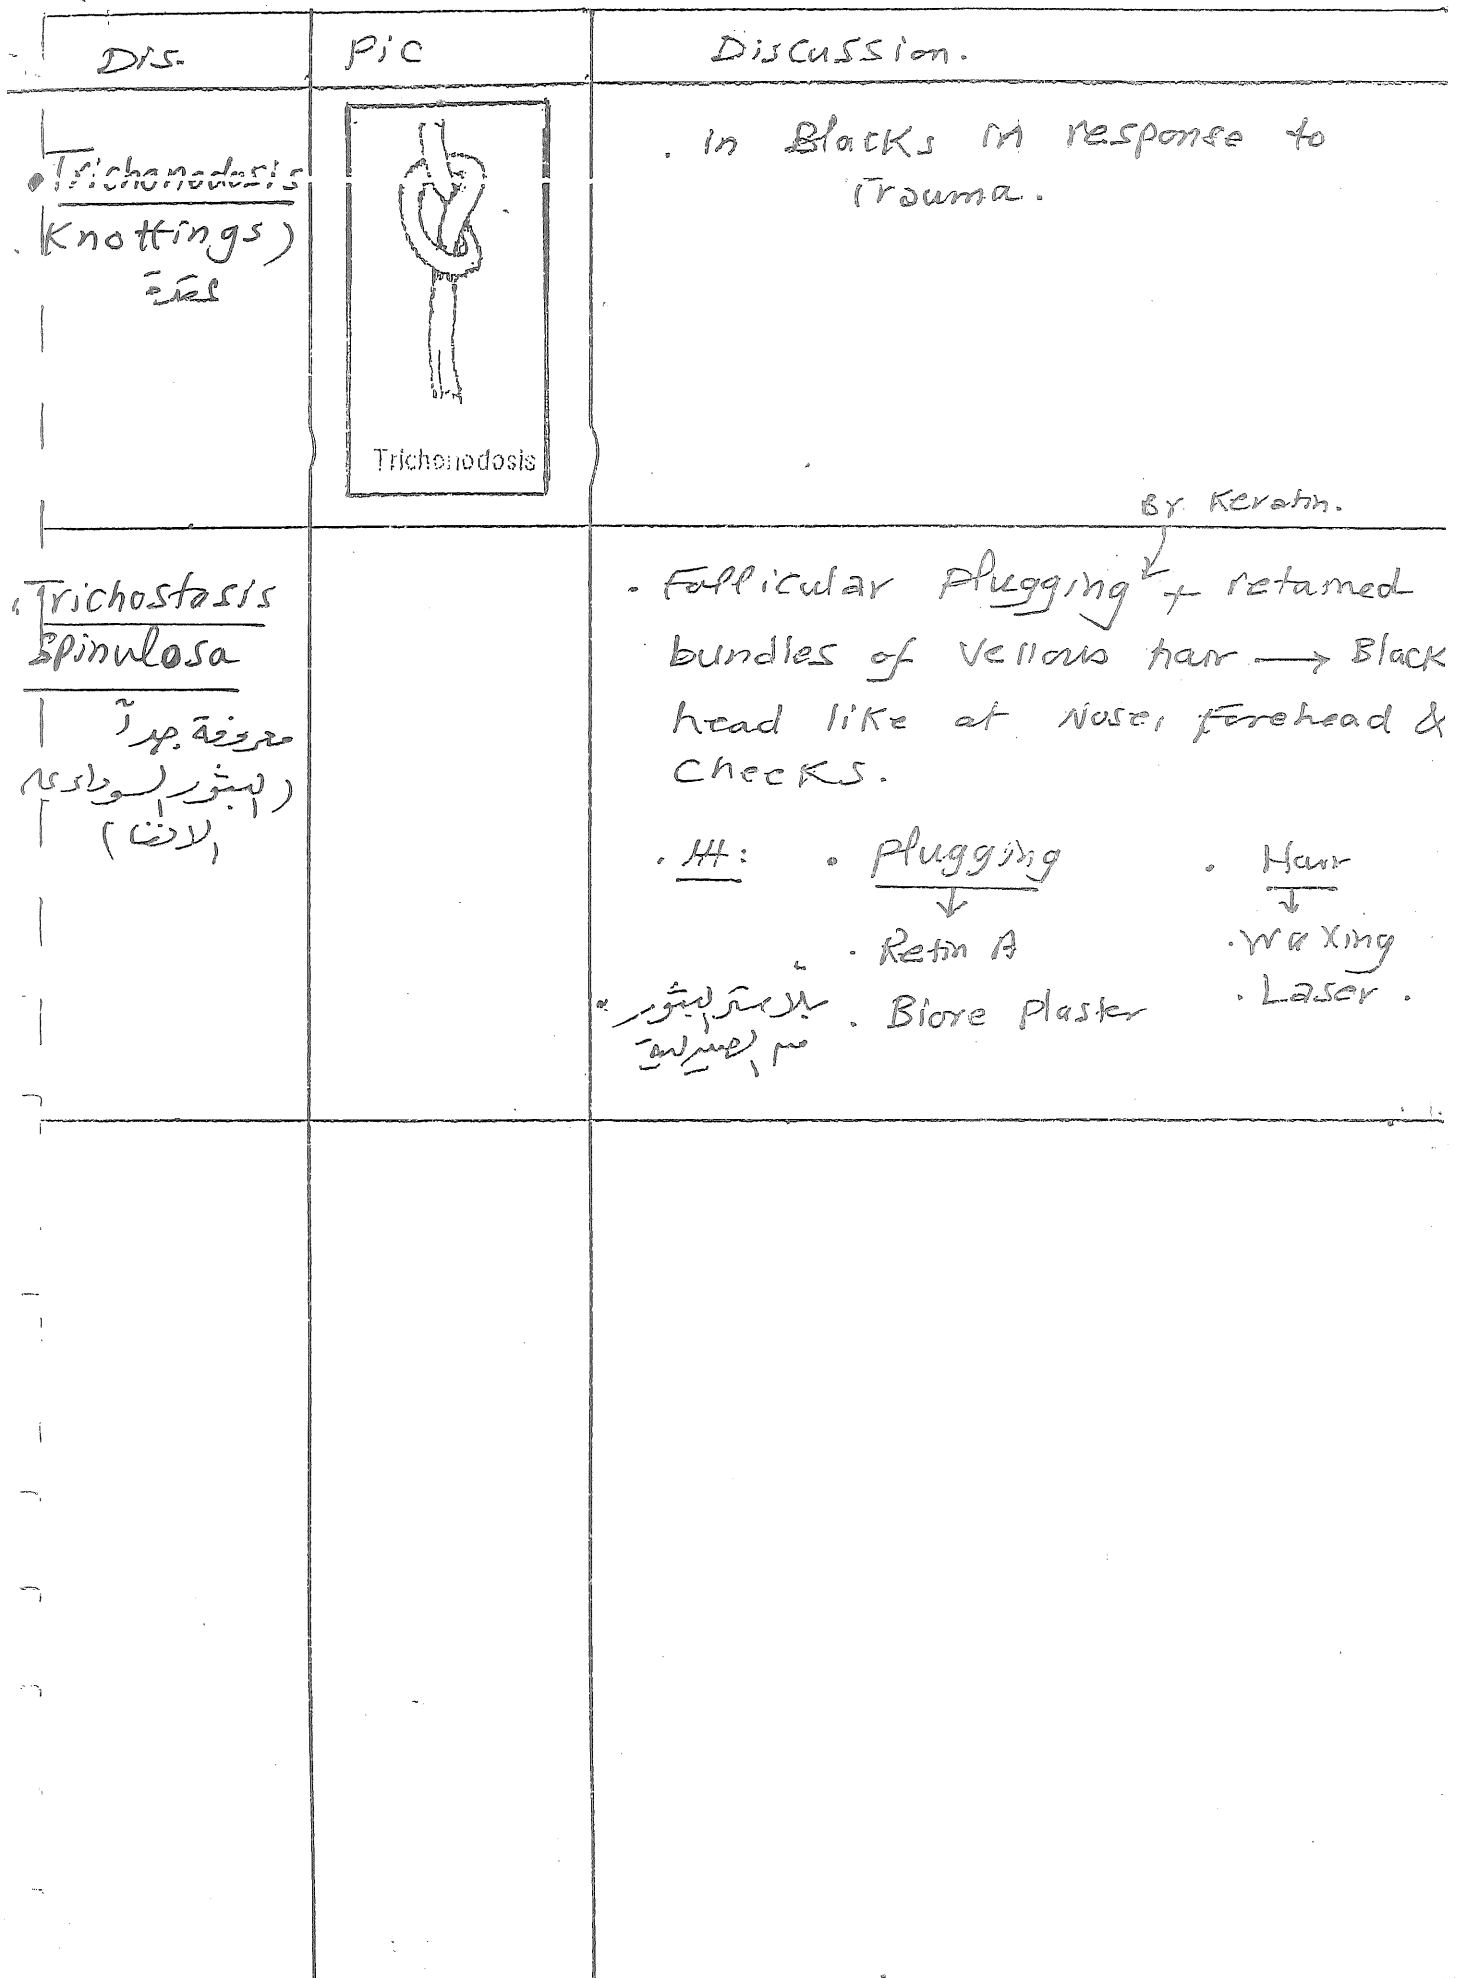 Dis.
Pic
Discussion.
. Trichonodosis
. Knottings)
عقدة
Trichonodosis
. in Blacks in response to
Trauma.
By Keratin.
. Trichostasis
Spinulosa
معروفة جداً
(البثور السوداء
الانف)
. Follicular plugging + retained
bundles of Vellous hair → Black
head like at Nose, Forehead &
Checks.
. ttt: . plugging . Hair
↓ ↓
. Retin A . Waxing
. Biore plaster . Laser .
بلاستر البثور
من الصيدلية